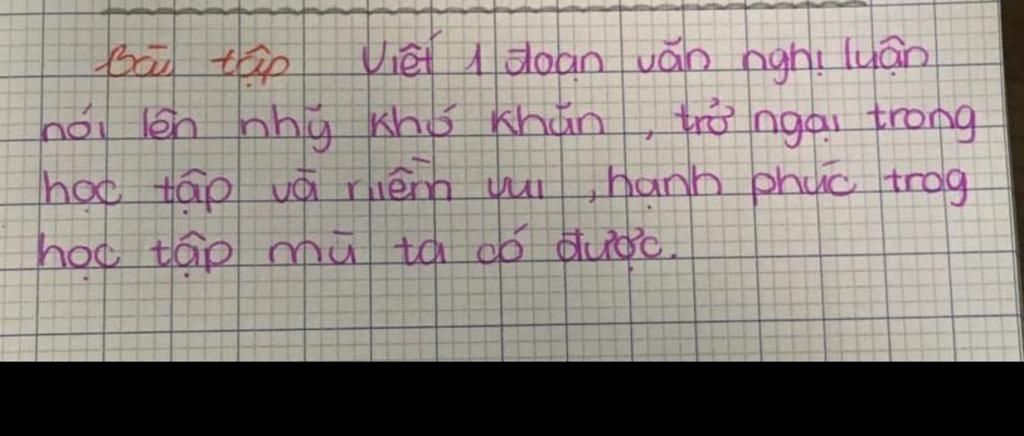 Bài tập Viết 1 đoạn văn nghị luận
nói lên nhữ khó khăn, trở ngại trong
học tập và niềm vui, hạnh phúc trog
học tập mà ta có được.